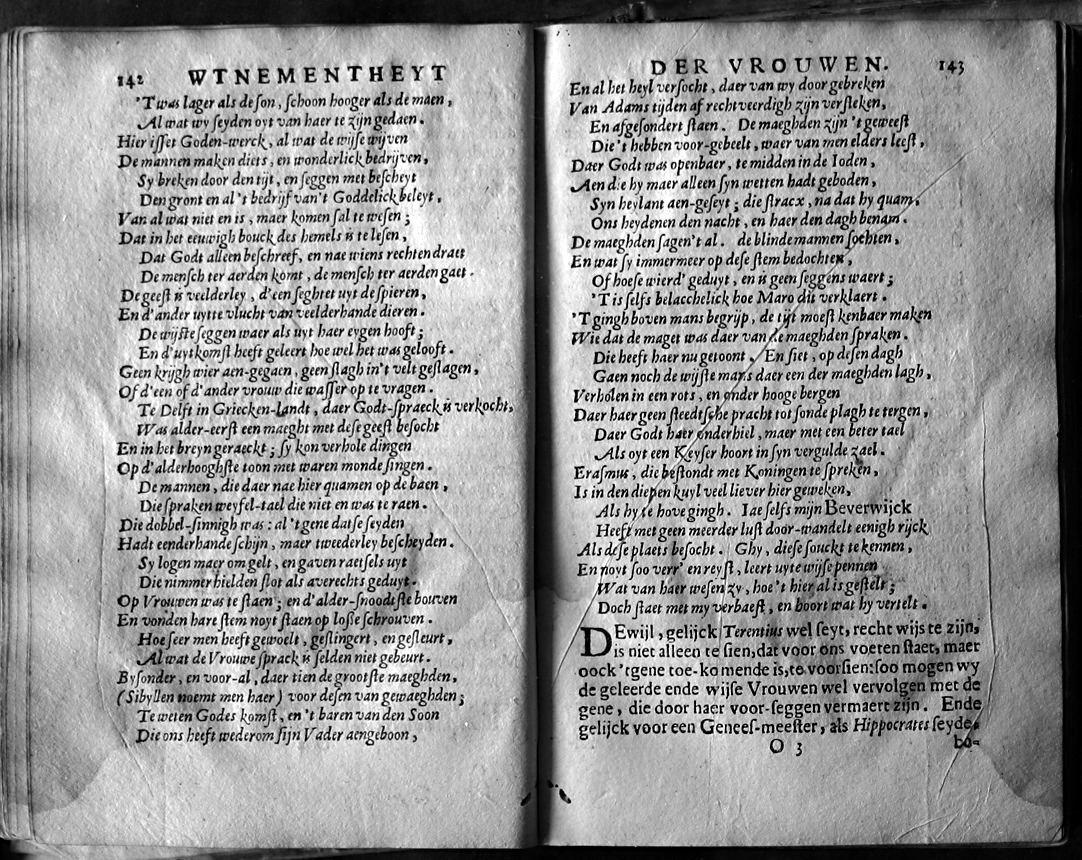 142 WTNEMENTHEYT
'T was lager als de son, schoon hooger als de maen,
Al wat wy seyden oyt van haer te zijn gedaen.
Hier isset Goden-werck, al wat de wijse wijven
De mannen maken diets, en wonderlick bedrijven,
Sy breken door den tijt, en seggen met bescheyt
Den gront en al 't bedrijf van't Goddelick beleyt,
Van al wat niet en is, maer komen sal te wesen;
Dat in het eeuwigh bouck des hemels is te lesen,
Dat Godt alleen beschreef, en nae wiens rechten draet
De mensch ter aerden komt, de mensch ter aerden gaet.
De geest is veelderley, d'een seghtet uyt de spieren,
En d'ander uytte vlucht van veelderhande dieren.
De wijste seggen waer als uyt haer eygen hooft;
En d'uytkomst heeft geleert hoe wel het was gelooft.
Geen krijgh wier aen-gegaen, geen slagh in't velt geslagen,
Of d'een of d'ander vrouw die wasser op te vragen.
Te Delft in Griecken-landt, daer Godt-spraeck is verkocht,
Was alder-eerst een maeght met dese geest besocht
En in het breyn geraeckt; sy kon verhole dingen
Op d'alderhooghste toon met waren monde singen.
De mannen, die daer nae hier quamen op de baen,
Die spraken weyfel-tael die niet en was te raen.
Die dobbel-sinnigh was: al 't gene datse seyden
Hadt eenderhande schijn, maer tweederley bescheyden.
Sy logen maer om gelt, en gaven raetsels uyt
Die nimmer hielden slot als averechts geduyt.
Op Vrouwen was te staen; en d'alder-snoodtste bouven
En vonden hare stem noyt staen op losse schrouven.
Hoe seer men heeft gewoelt, geslingert, en gesleurt,
Al wat de Vrouwe sprack is selden niet gebeurt.
Bysonder, en voor-al, daer tien de grootste maeghden,
(Sibyllen noemt men haer) voor desen van gewaeghden;
Te weten Godes komst, en 't baren van den Soon
Die ons heeft wederom sijn Vader aengeboon,
DER VROUWEN. 143
En al het heyl versocht, daer van wy door gebreken
Van Adams tijden af rechtveerdigh zijn versteken,
En afgesondert staen. De maeghden zijn 't geweest
Die't hebben voor-gebeelt, waer van men elders leest,
Daer Godt was openbaer, te midden in de Ioden,
Aen die hy maer alleen syn wetten hadt geboden,
Syn heylant aen-geseyt; die stracx, na dat hy quam,
Ons heydenen den nacht, en haer den dagh benam.
De maeghden sagen't al. de blinde mannen sochten,
En wat sy immermeer op dese stem bedochten,
Of hoese wierd' geduyt, en is geen seggens waert;
'T is selfs belacchelick hoe Maro dit verklaert.
'T gingh boven mans begrijp, de tijt moest kenbaer maken
Wie dat de maget was daer van de maeghden spraken.
Die heeft haer nu getoont. En siet, op desen dagh
Gaen noch de wijste mans daer een der maeghden lagh,
Verholen in een rots, en onder hooge bergen
Daer haer geen steedtsche pracht tot sonde plagh te tergen,
Daer Godt haer onderhiel, maer met een beter tael
Als oyt een Keyser hoort in syn vergulde zael.
Erasmus, die bestondt met Koningen te spreken,
Is in den diepen kuyl veel liever hier geweken,
Als hy te hove gingh. Iae selfs mijn Beverwijck
Heeft met geen meerder lust door-wandelt eenigh rijck
Als dese plaets besocht. Ghy, diese souckt te kennen,
En noyt soo verr' en reyst, leert uyte wijse pennen
Wat van haer wesen zy, hoe't hier al is gestelt;
Doch staet met my verbaest, en hoort wat hy vertelt.
DEwijl, gelijck Terentius wel seyt, recht wijs te zijn,
is niet alleen te sien, dat voor ons voeten staet, maer
oock 'tgene toe-komende is, te voorsien: soo mogen wy
de geleerde ende wijse Vrouwen wel vervolgen met de
gene, die door haer voor-seggen vermaert zijn. Ende
gelijck voor een Genees-meester, als Hippocrates seyde,
O 3 bo-